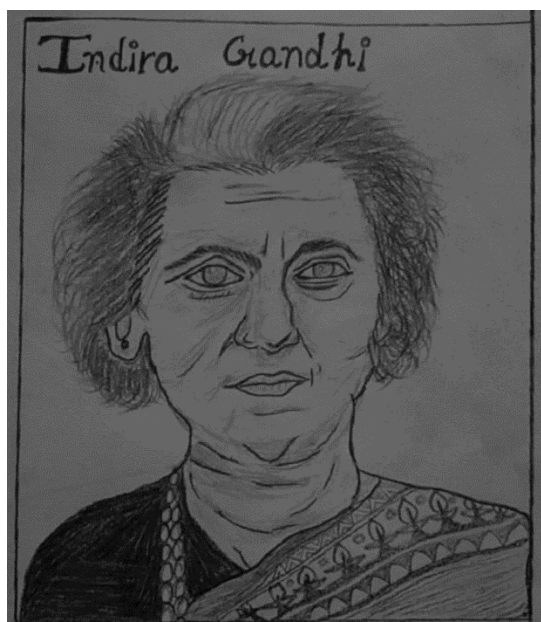 Indira Gandhi